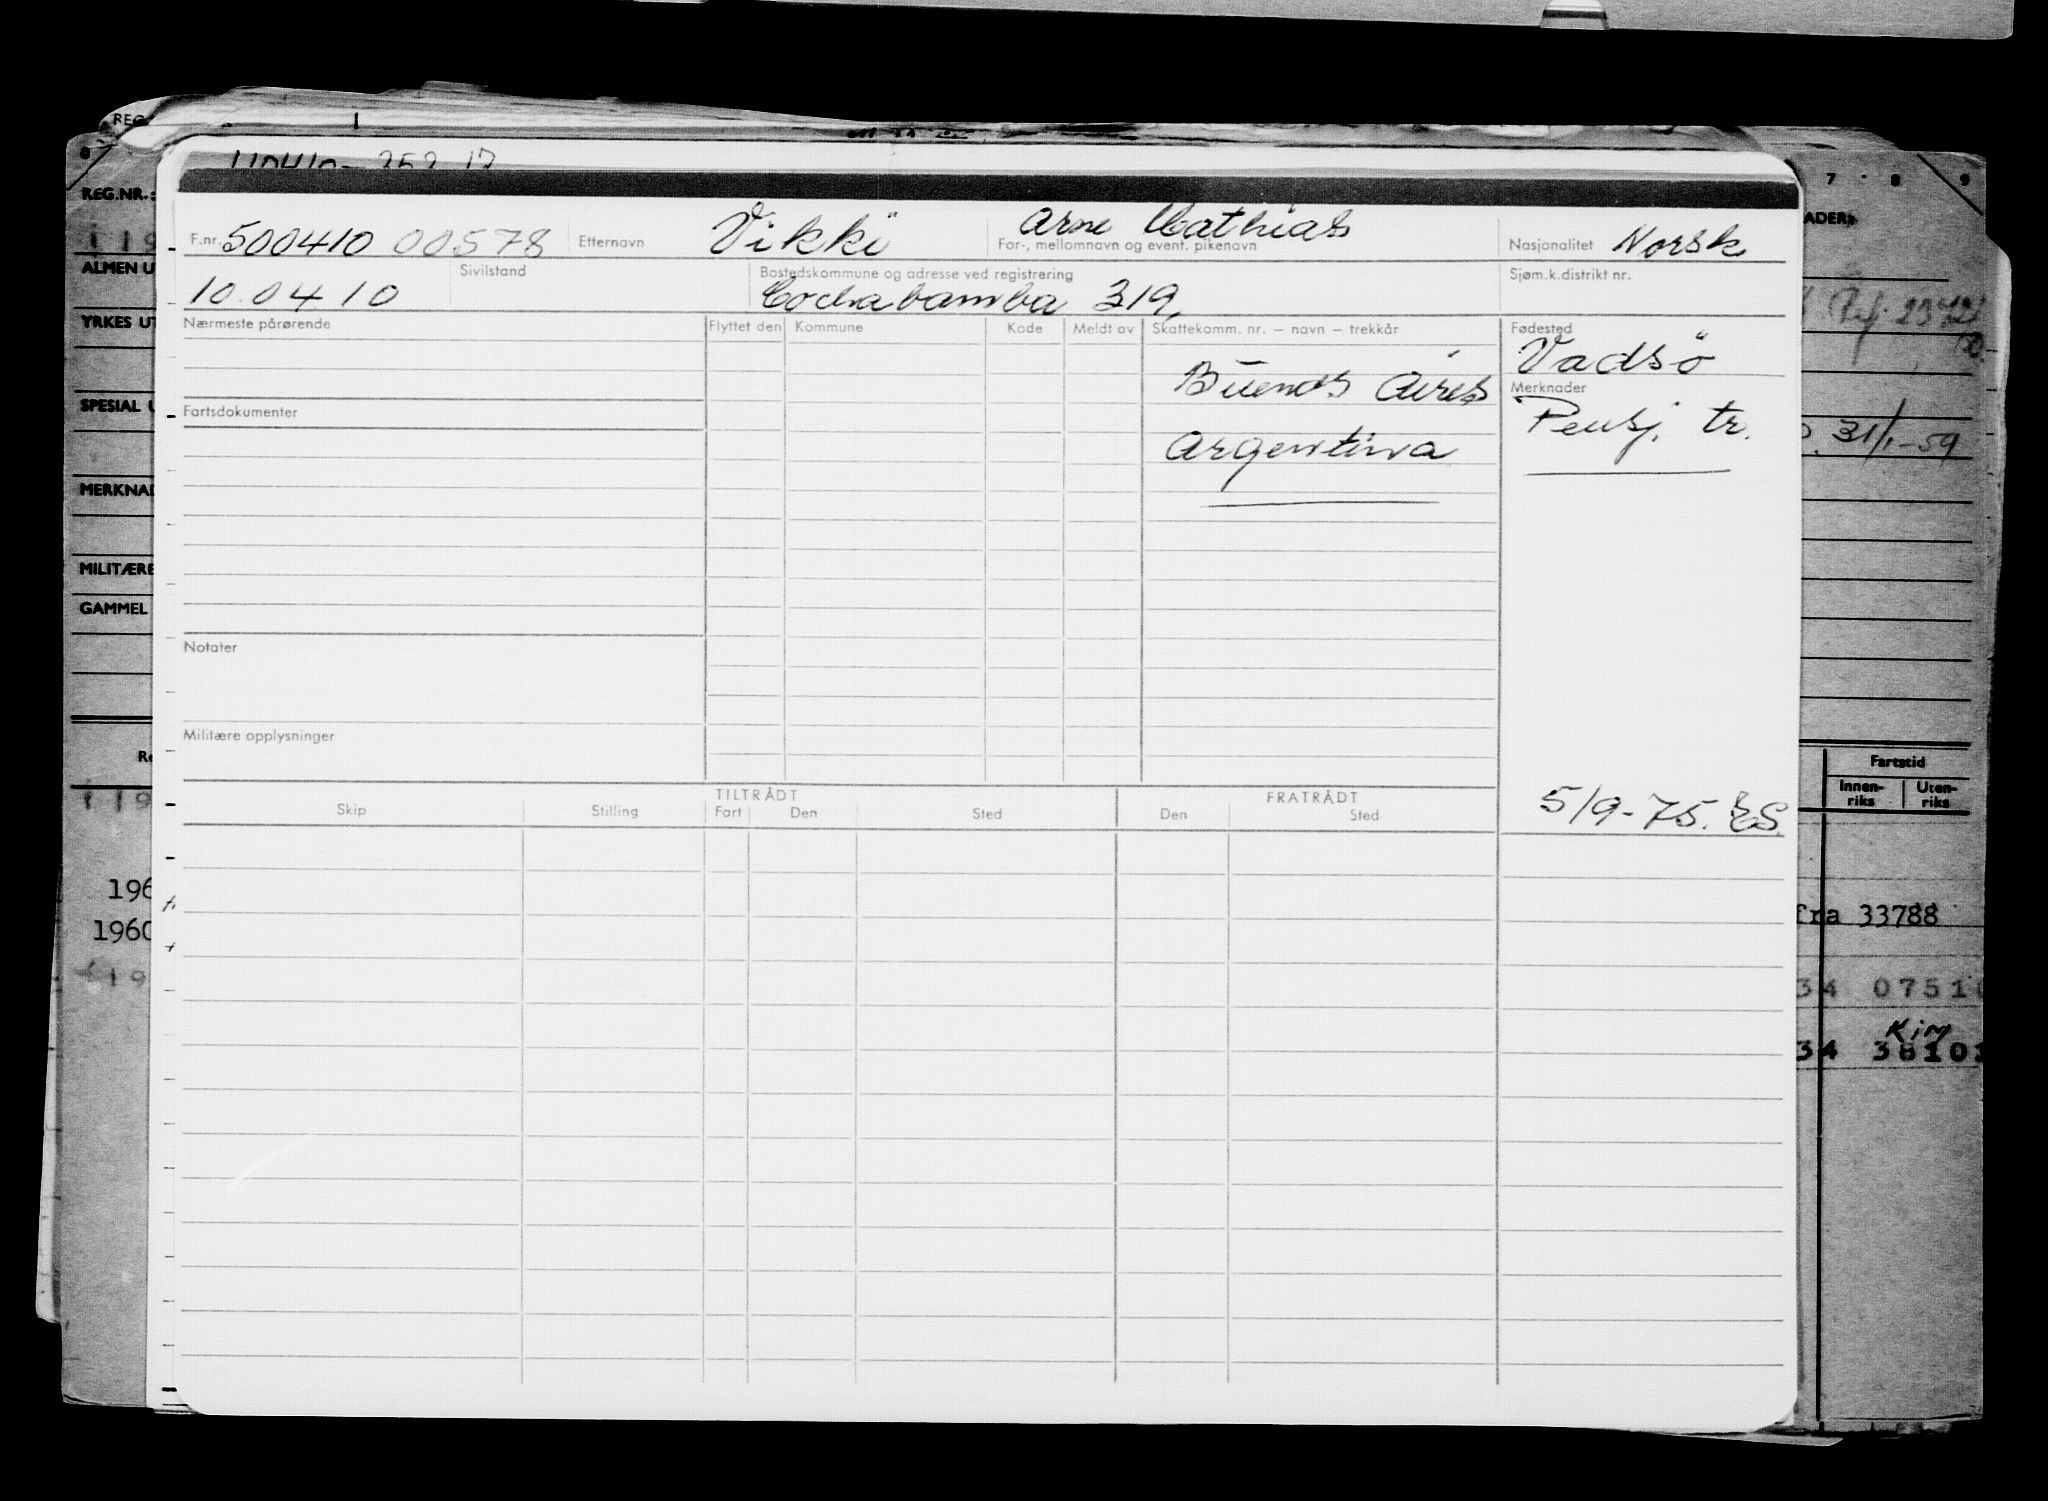 REG
REG.NR.:
ALMEN U
YRKES UT
SPESIAL U
MERKNAD
MILITÆRE
GAMMEL
196
1960
7 8 9
31/1-59
Fartstid
Innen-riks Uten-riks
fra 33788
34 0751
Kim
34 38101
F.nr. 500410 00578 Etternavn Vikki Arne Mathias Nasjonalitet Norsk
For-, mellomnavn og event. pikenavn
Sivilstand Bostedskommune og adresse ved registrering Sjøm.k.distrikt nr.
10.04 10 Cochabamba 319,
Nærmeste pårørende Flyttet den Kommune Kode Meldt av Skattekomm. nr. – navn – trekkår Fødested
Vadsö
Buenos Aires Merknader
Fartsdokumenter Pensj. tr.
Argentina
Notater
Militære opplysninger
TILTRÅDT FRATRÅDT
Skip Stilling Fart Den Sted Den Sted
5/9-75.